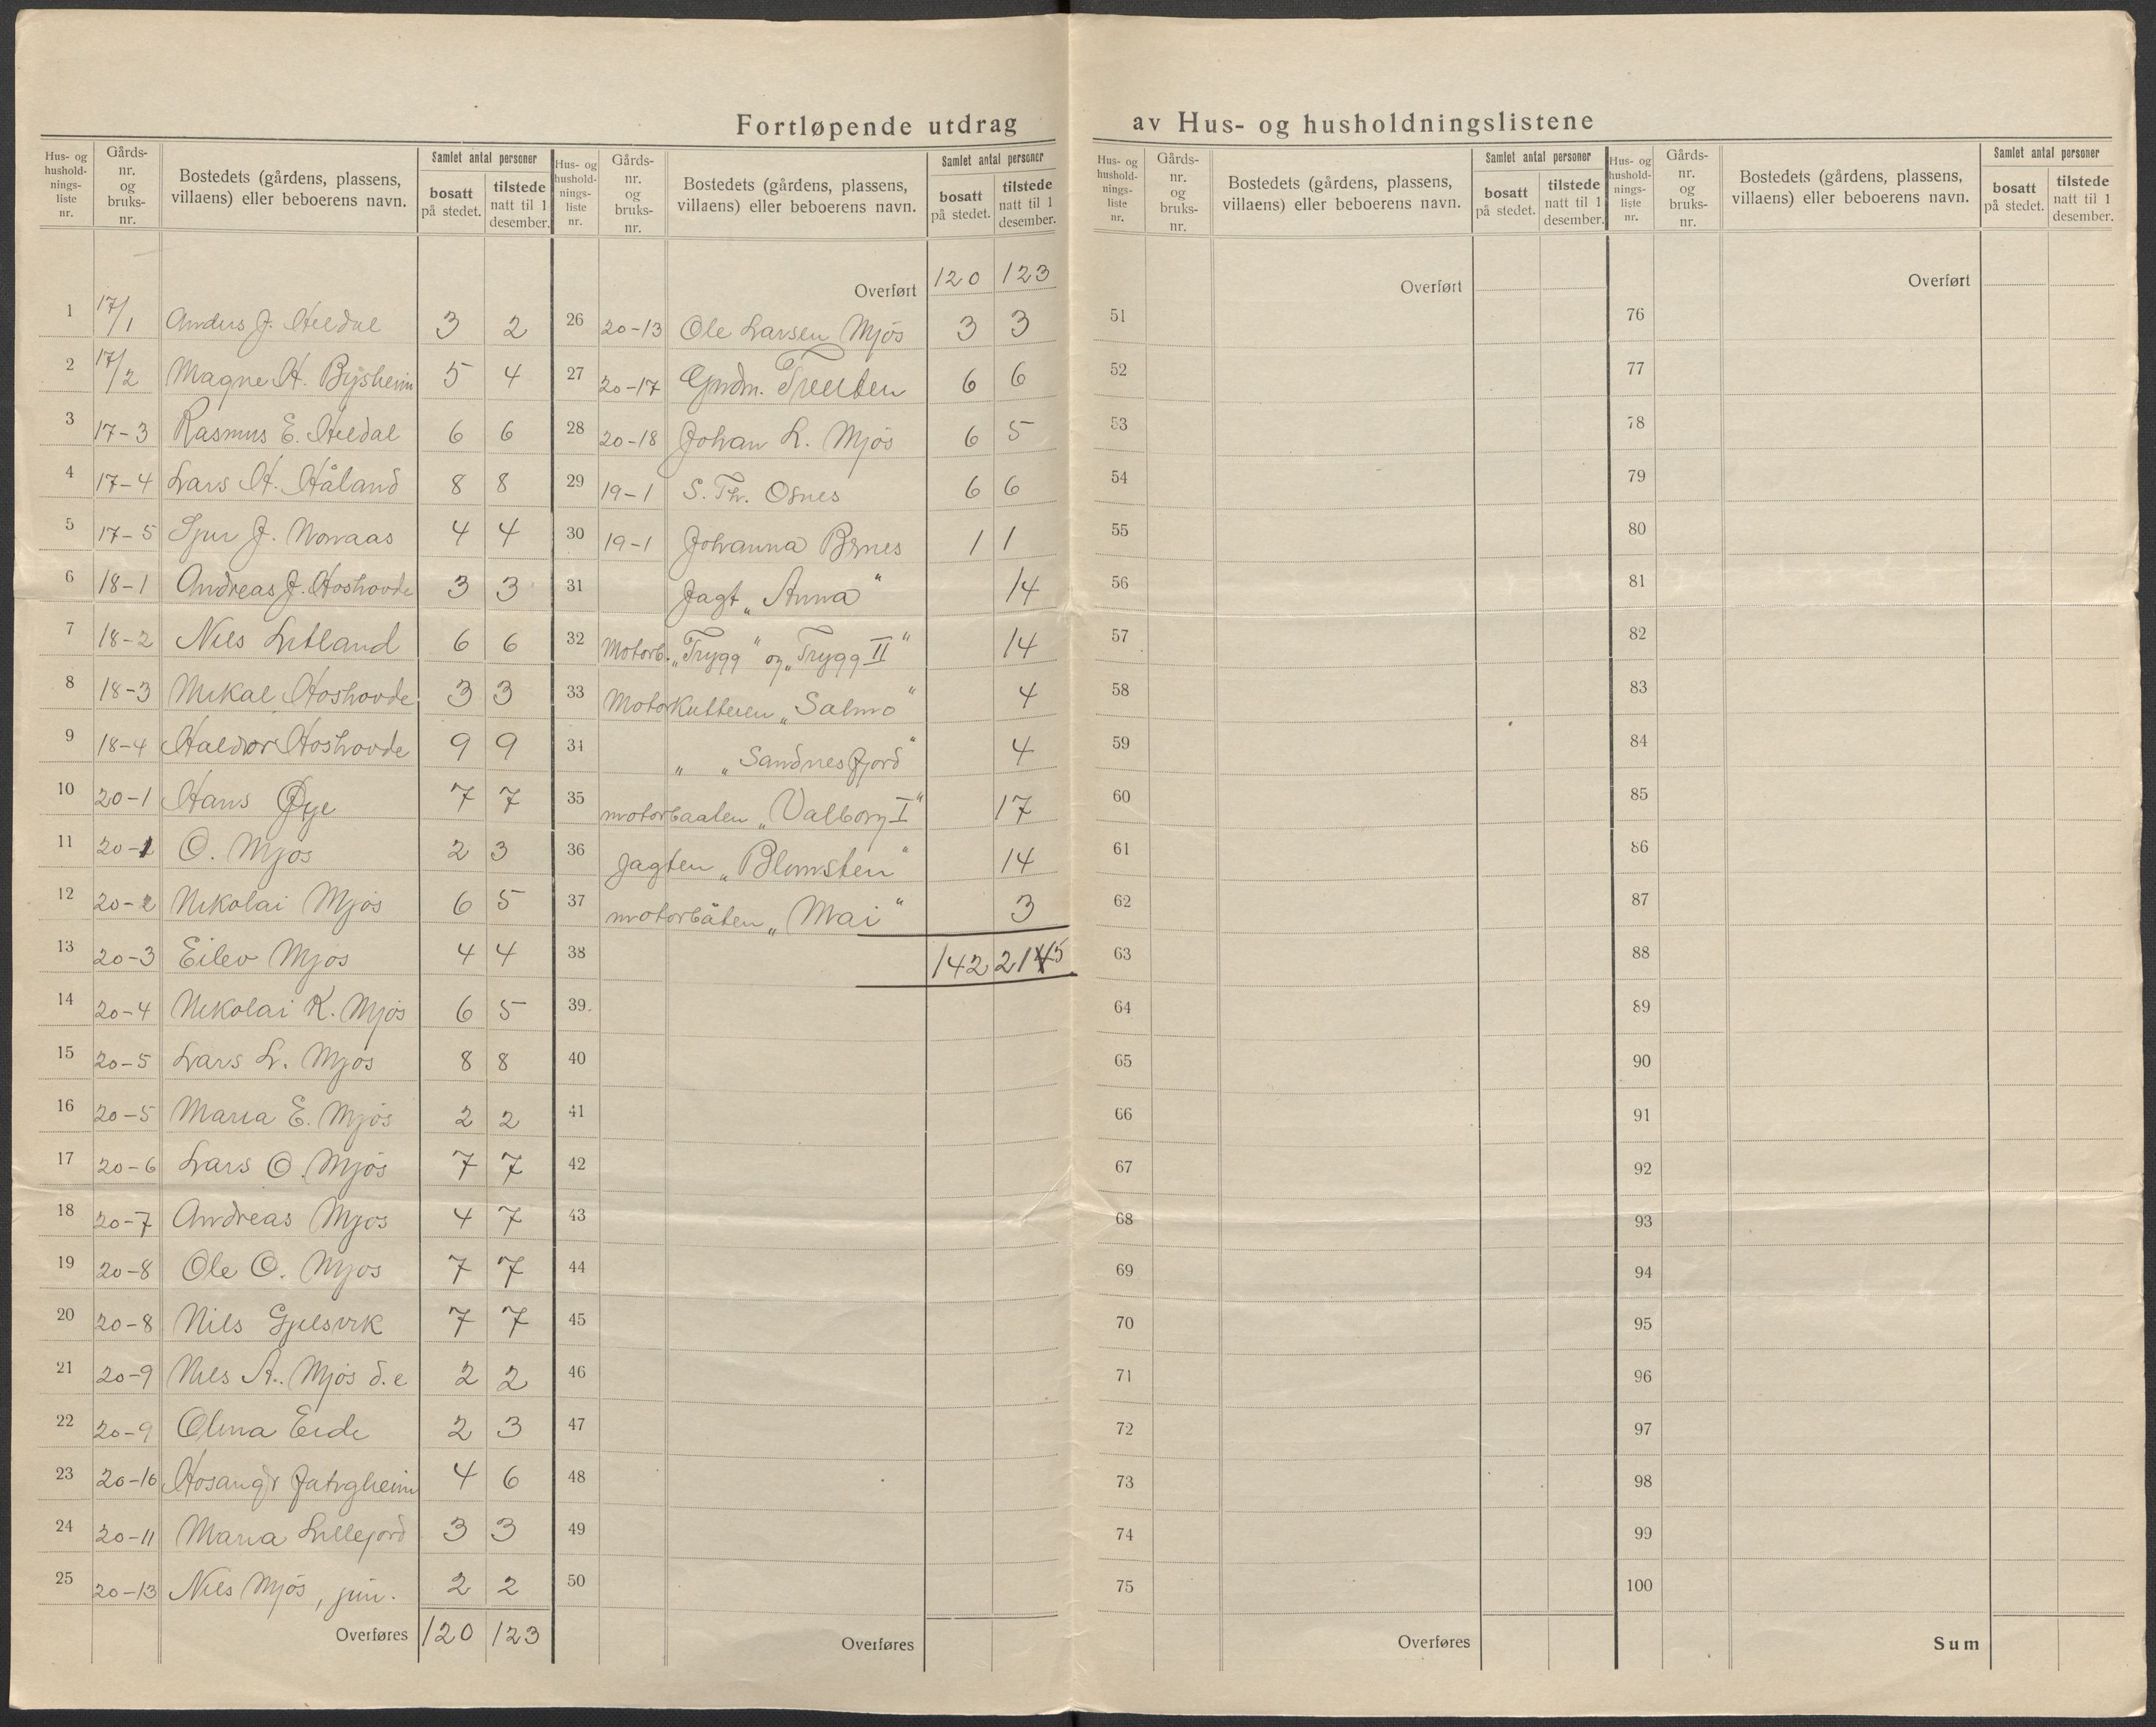 Fortløpende utdrag av Hus- og husholdningslistene
Hus- og husholdnings- liste nr. | Gårds- nr. og bruks- nr. | Bostedets (gårdens, plassens, villaens) eller beboerens navn. | Samlet antal personer | bosatt på stedet. | tilstede natt til 1 desember.
1 17/1 Anders J. Heldal 3 2
2 17/2 Magne H. Bysheim 5 4
3 17-3 Rasmus E. Heldal 6 6
4 17-4 Lars H. Håland 8 8
5 17-5 J. 4 4
6 18-1 Andreas J. Hoshovde 3 3
7 18-2 Nils Litland 6 6
8 18-3 Mikal Hoshovde 3 3
9 18-4 Haldor Hoshovde 9 9
10 20-1 Hans Øye 7 7
11 20-1 O. Mjøs 2 3
12 20-2 Nikolai Mjøs 6 5
13 20-3 Eilev Mjøs 4 4
14 20-4 Nikolai K. Mjøs 6 5
15 20-5 Lars L. Mjøs 8 8
16 20-5 Maria E. Mjøs 2 2
17 20-6 Lars O. Mjøs 7 7
18 20-7 Andreas Mjøs 4 7
19 20-8 Ole O. Mjøs 7 7
20 20-8 Nils Gjelsvik 7 7
21 20-9 Nils A. Mjøs d.e 2 2
22 20-9 Olina Eide 2 3
23 20-10 4 6
24 20-11 Maria Lillejord 3 3
25 20-13 Nils Mjøs, jun. 2 2
Overføres 120 123
Hus- og husholdnings- liste nr. | Gårds- nr. og bruks- nr. | Bostedets (gårdens, plassens, villaens) eller beboerens navn. | Samlet antal personer | bosatt på stedet. | tilstede natt til 1 desember.
Overført 120 123
26 20-13 Ole Larsen Mjøs 3 3
27 20-17 Gudm. 6 6
28 20-18 Johan L. Mjøs 6 5
29 19-1 S. Th. Osnes 6 6
30 19-1 Johanna 1 1
31 Jagt „Anna" 14
32 Motorb. „Trygg" og „Trygg II" 14
33 Motorkutteren „Salmo" 4
34 „ „Sandnesfjord" 4
35 motorbaaten „Valborg I" 17
36 Jagten „Blomsten" 14
37 motorbåten „Mai" 3
38 142 215
39.
40
41
42
43
44
45
46
47
48
49
50
Overføres
Hus- og husholdnings- liste nr. | Gårds- nr. og bruks- nr. | Bostedets (gårdens, plassens, villaens) eller beboerens navn. | Samlet antal personer | bosatt på stedet. | tilstede natt til 1 desember.
Overført
51
52
53
54
55
56
57
58
59
60
61
62
63
64
65
66
67
68
69
70
71
72
73
74
75
Overføres
Hus- og husholdnings- liste nr. | Gårds- nr. og bruks- nr. | Bostedets (gårdens, plassens, villaens) eller beboerens navn. | Samlet antal personer | bosatt på stedet. | tilstede natt til 1 desember.
Overført
76
77
78
79
80
81
82
83
84
85
86
87
88
89
90
91
92
93
94
95
96
97
98
99
100
Sum